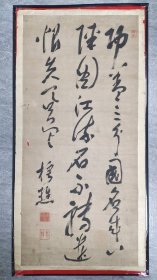 功蓋三分國名成八
陣圖江流石不轉遺
恨失吞吳